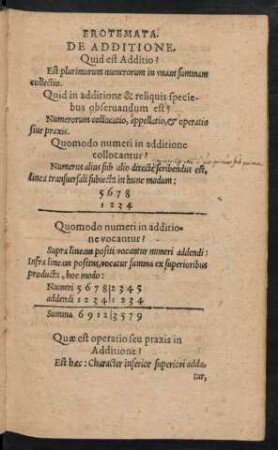 EROTEMATA.
DE ADDITIONE.
Quid est Additio?
Est plurimorum numerorum in vnam summam
collectio.
Quid in additione & reliquis specie-
bus obseruandum est?
Numerorum collocatio, appellatio, & operatio
siue praxis.
Quomodo numeri in additione
collocantur?
Numerus alius sub alio directè scribendus est,
linea transuersali subiecta in hunc modum:
5 6 7 8
1 2 3 4
Quomodo numeri in additio-
ne vocantur?
Supra lineam positi vocantur numeri addendi:
Infra lineam positus, vocatur summa ex superioribus
producta, hoc modo:
Numeri 5 6 7 8|2 3 4 5
addendi 1 2 3 4|1 2 3 4
Summa 6 9 1 2|3 5 7 9
Quæ est operatio seu praxis in
Additione?
Est hæc: Character inferior superiori adda-
tur,